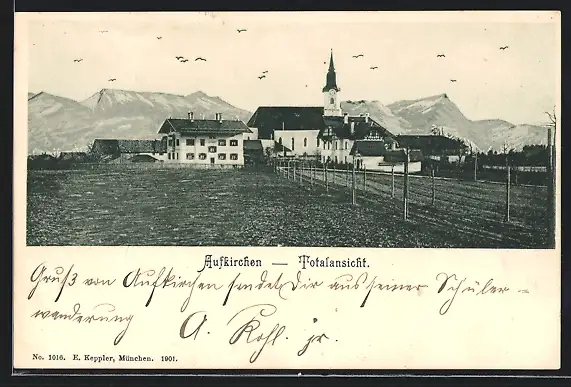 Aufkirchen — Totalansicht.
Gruß von Aufkirchen sendet Dir auf seiner Schüler-
wanderung A. Kohl. jr.
No. 1016. E. Keppler, München. 1901.